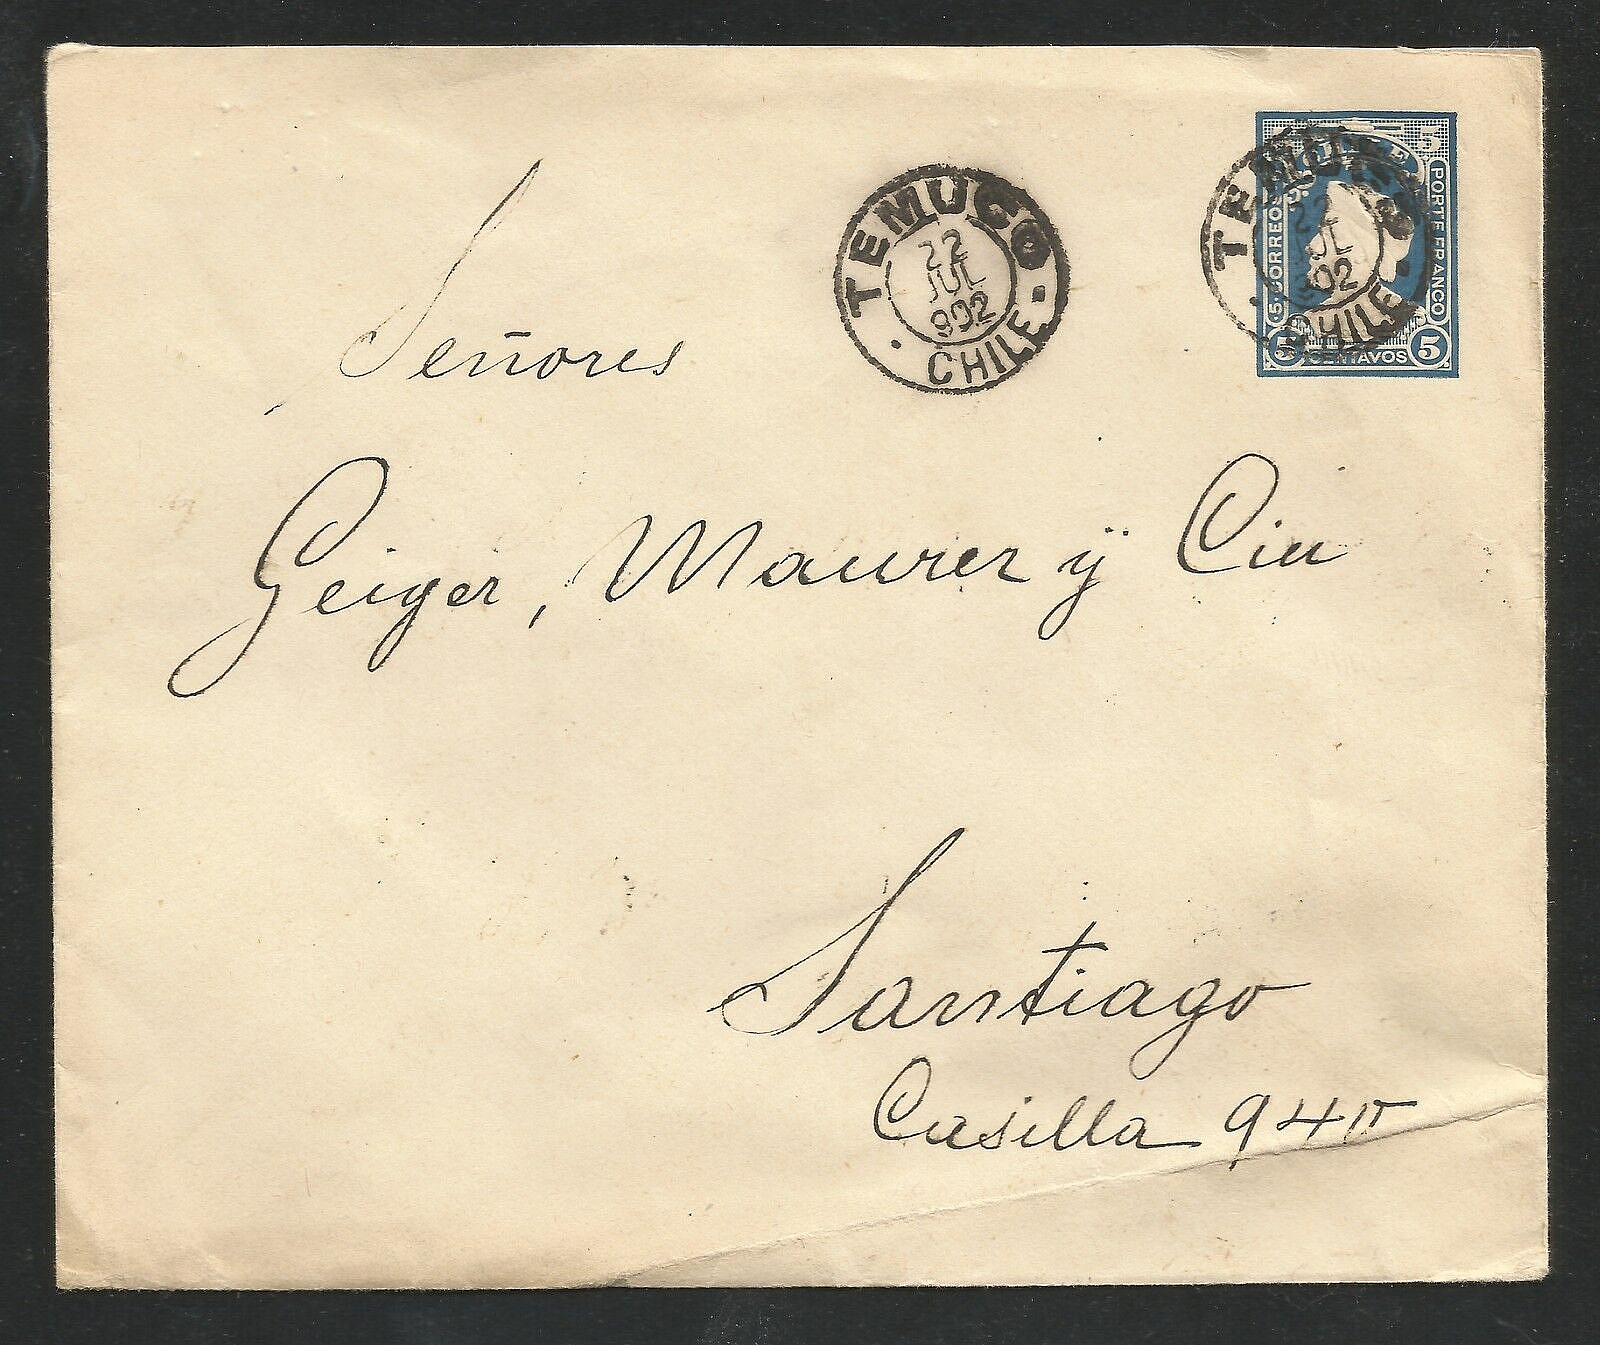 TEMUCO
22
JUL
902
CHILE
5
CORREOS
PORTE FRANCO
5 CENTAVOS 5
TEMUCO
22
JUL
902
CHILE
Señores
Geiger, Maurer ÿ Cia
Santiago
Casilla